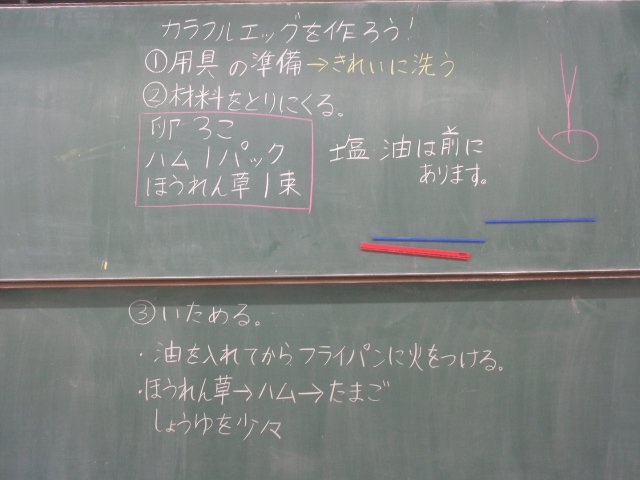 カラフルエッグを作ろう!
①用具の準備→きれいに洗う
②材料をとりにくる。
卵 3こ
ハム 1パック
ほうれん草 1束
塩 油は前に
あります。
③いためる。
・油を入れてからフライパンに火をつける。
・ほうれん草→ハム→たまご
しょうゆを少々